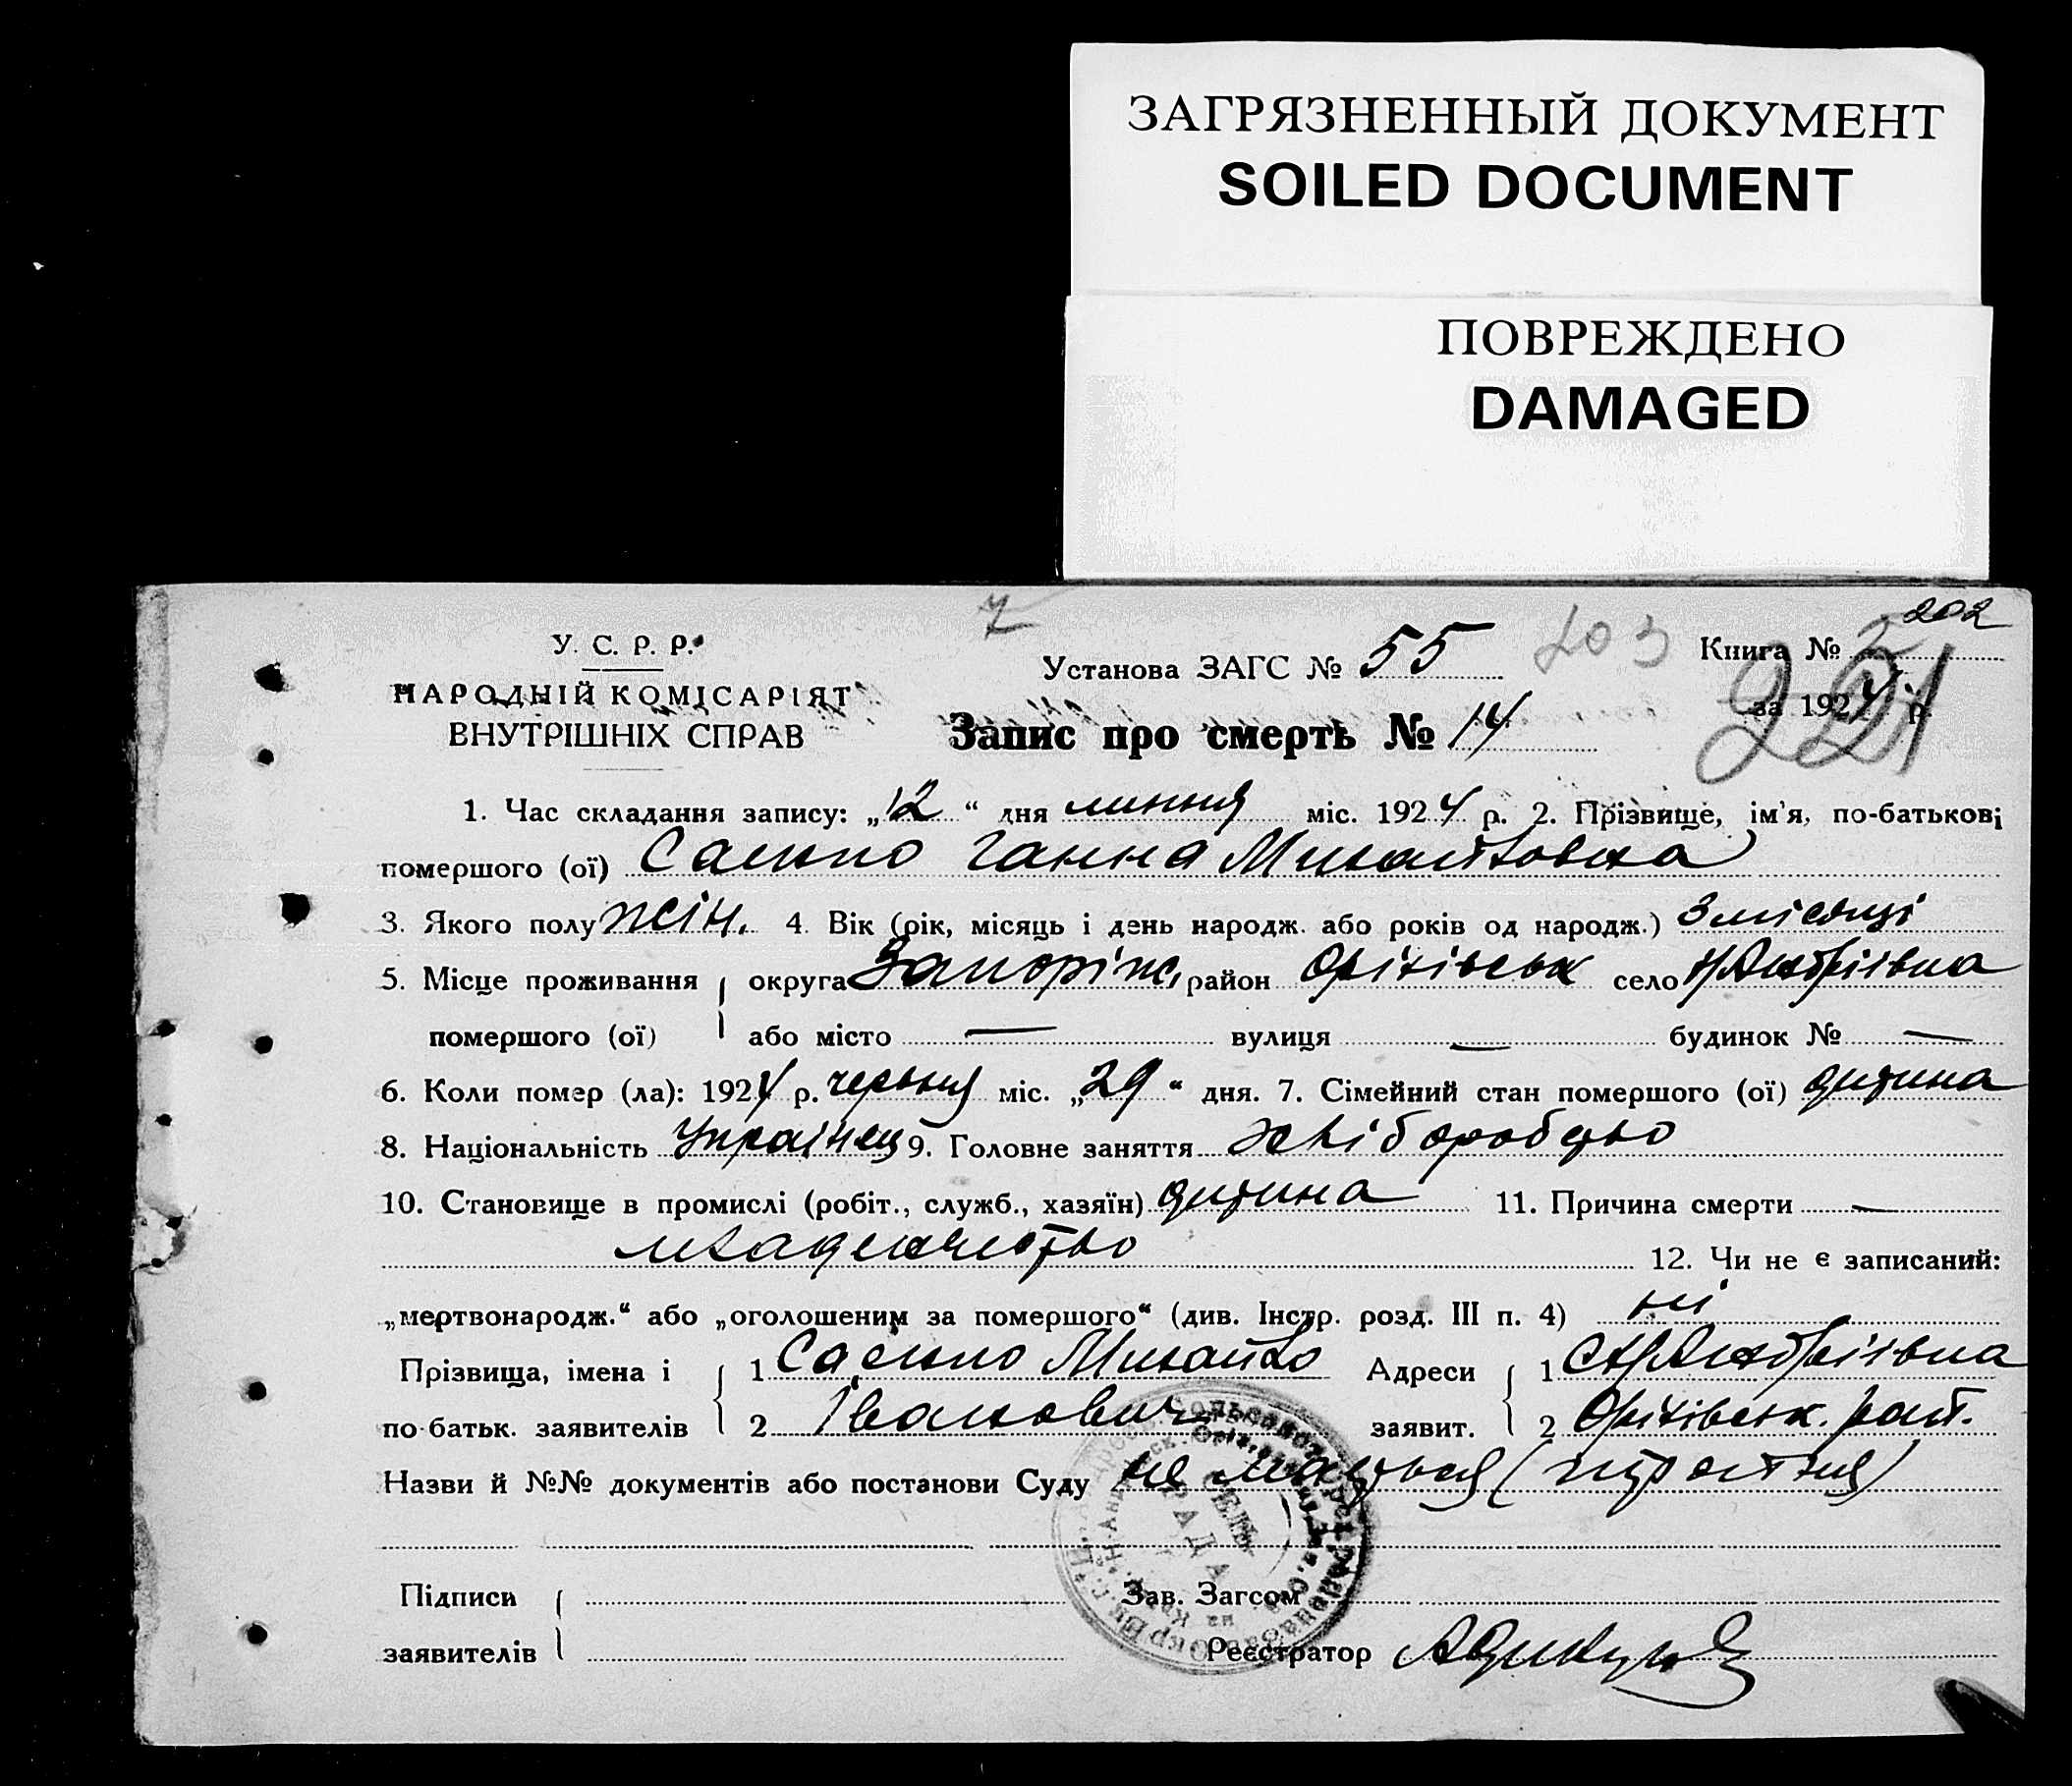 ЗАГРЯЗНЕННЫЙ ДОКУМЕНТ
SOILED DOCUMENT
ПОВРЕЖДЕНО
DAMAGED
7
202
У. С. Р. Р.
НАРОДНІЙ КОМІСАРІЯТ
ВНУТРІШНІХ СПРАВ
Установа ЗАГС № 55
203
Книга № 2
221
за 1924 р.
Запис про смерть № 14
1. Час складання запису: „12“ дня липня міс. 1924 р. 2. Прізвище, ім'я, по-батькові
помершого (ої) Саенко Ганна Михайловна
3. Якого полу жін. 4. Вік (рік, місяць і день народж. або років од народж.) 3 місяці
5. Місце проживання округа Запоріж, район Оріхівськ село Н/Андріівка
помершого (ої) або місто — вулиця — будинок № —
6. Коли помер (ла): 1924 р. червня міс. „29“ дня. 7. Сімейний стан помершого (ої) дитина
8. Національність Украінец 9. Головне заняття хліборобство
10. Становище в промислі (робіт., служб., хазяїн) дитина 11. Причина смерти —
младенчество
12. Чи не є записаний:
„мертвонародж.“ або „оголошеним за помершого“ (див. Інстр. розд. III п. 4) ні
Прізвища, імена і 1 Саенко Михайло Адреси 1 С Н/Андріівка
по-батьк. заявителів 2 Іванович заявит. 2 Оріхівськ. рай.
Назви й №№ документів або постанови Суду не
Підписи Зав. Загсом
заявителів Реєстратор
СЕЛЬ-
РАДА